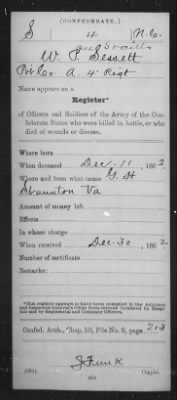 (CONFEDERATE.)
S 4 N.C.
W. P. Sessett
Pvt Co A. 4' Regt
Name appears on a
Register*
of Officers and Soldiers of the Army of the Con-
federate States who were killed in battle, or who
died of wounds or disease.
Where born
When deceased Dec. 11, 1862.
Where and from what cause G. H
Staunton Va
Amount of money left
Effects
In whose charge
When received Dec. 30, 1862.
Number of certificate
Remarks:
*This register appears to have been compiled in the Adjutant
and Inspector General's Office from returns furnished by Surgeons
and by Regimental and Company Officers.
Confed. Arch., Chap. 10, File No. 9, page 213
J. Funk
Copyist.